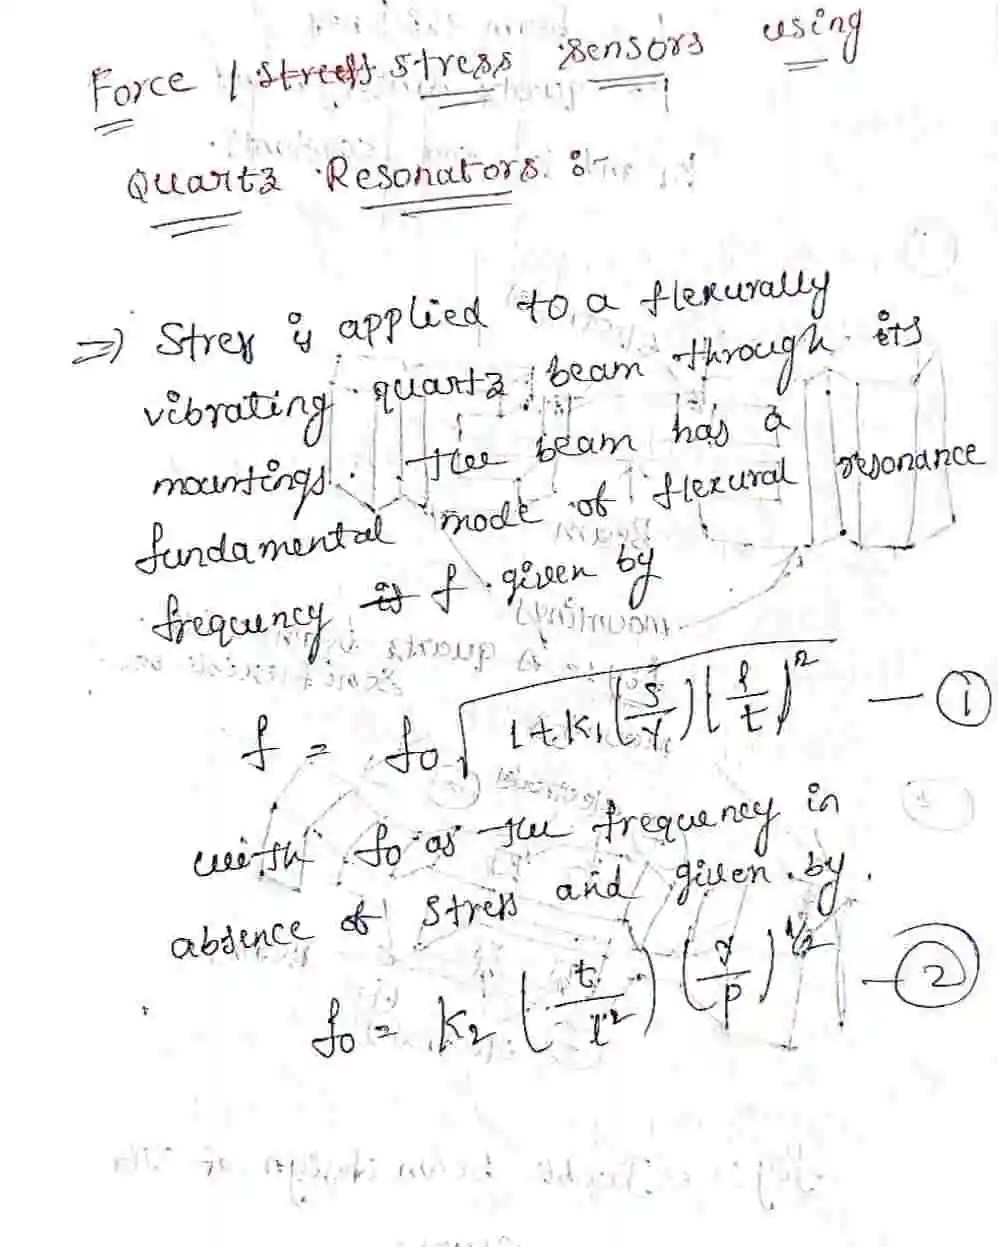 Force / stress sensors using
Quartz Resonators :-
=> Stress is applied to a flexurally
vibrating quartz beam through its
mountings. The beam has a
fundamental mode of flexural resonance
frequency f given by
f = f₀ √(1 + K₁ (S/Y) (l/t)²) — ①
with f₀ as the frequency in
absence of stress and given by
f₀ = K₂ (t/l²) (Y/ρ)^½ — ②